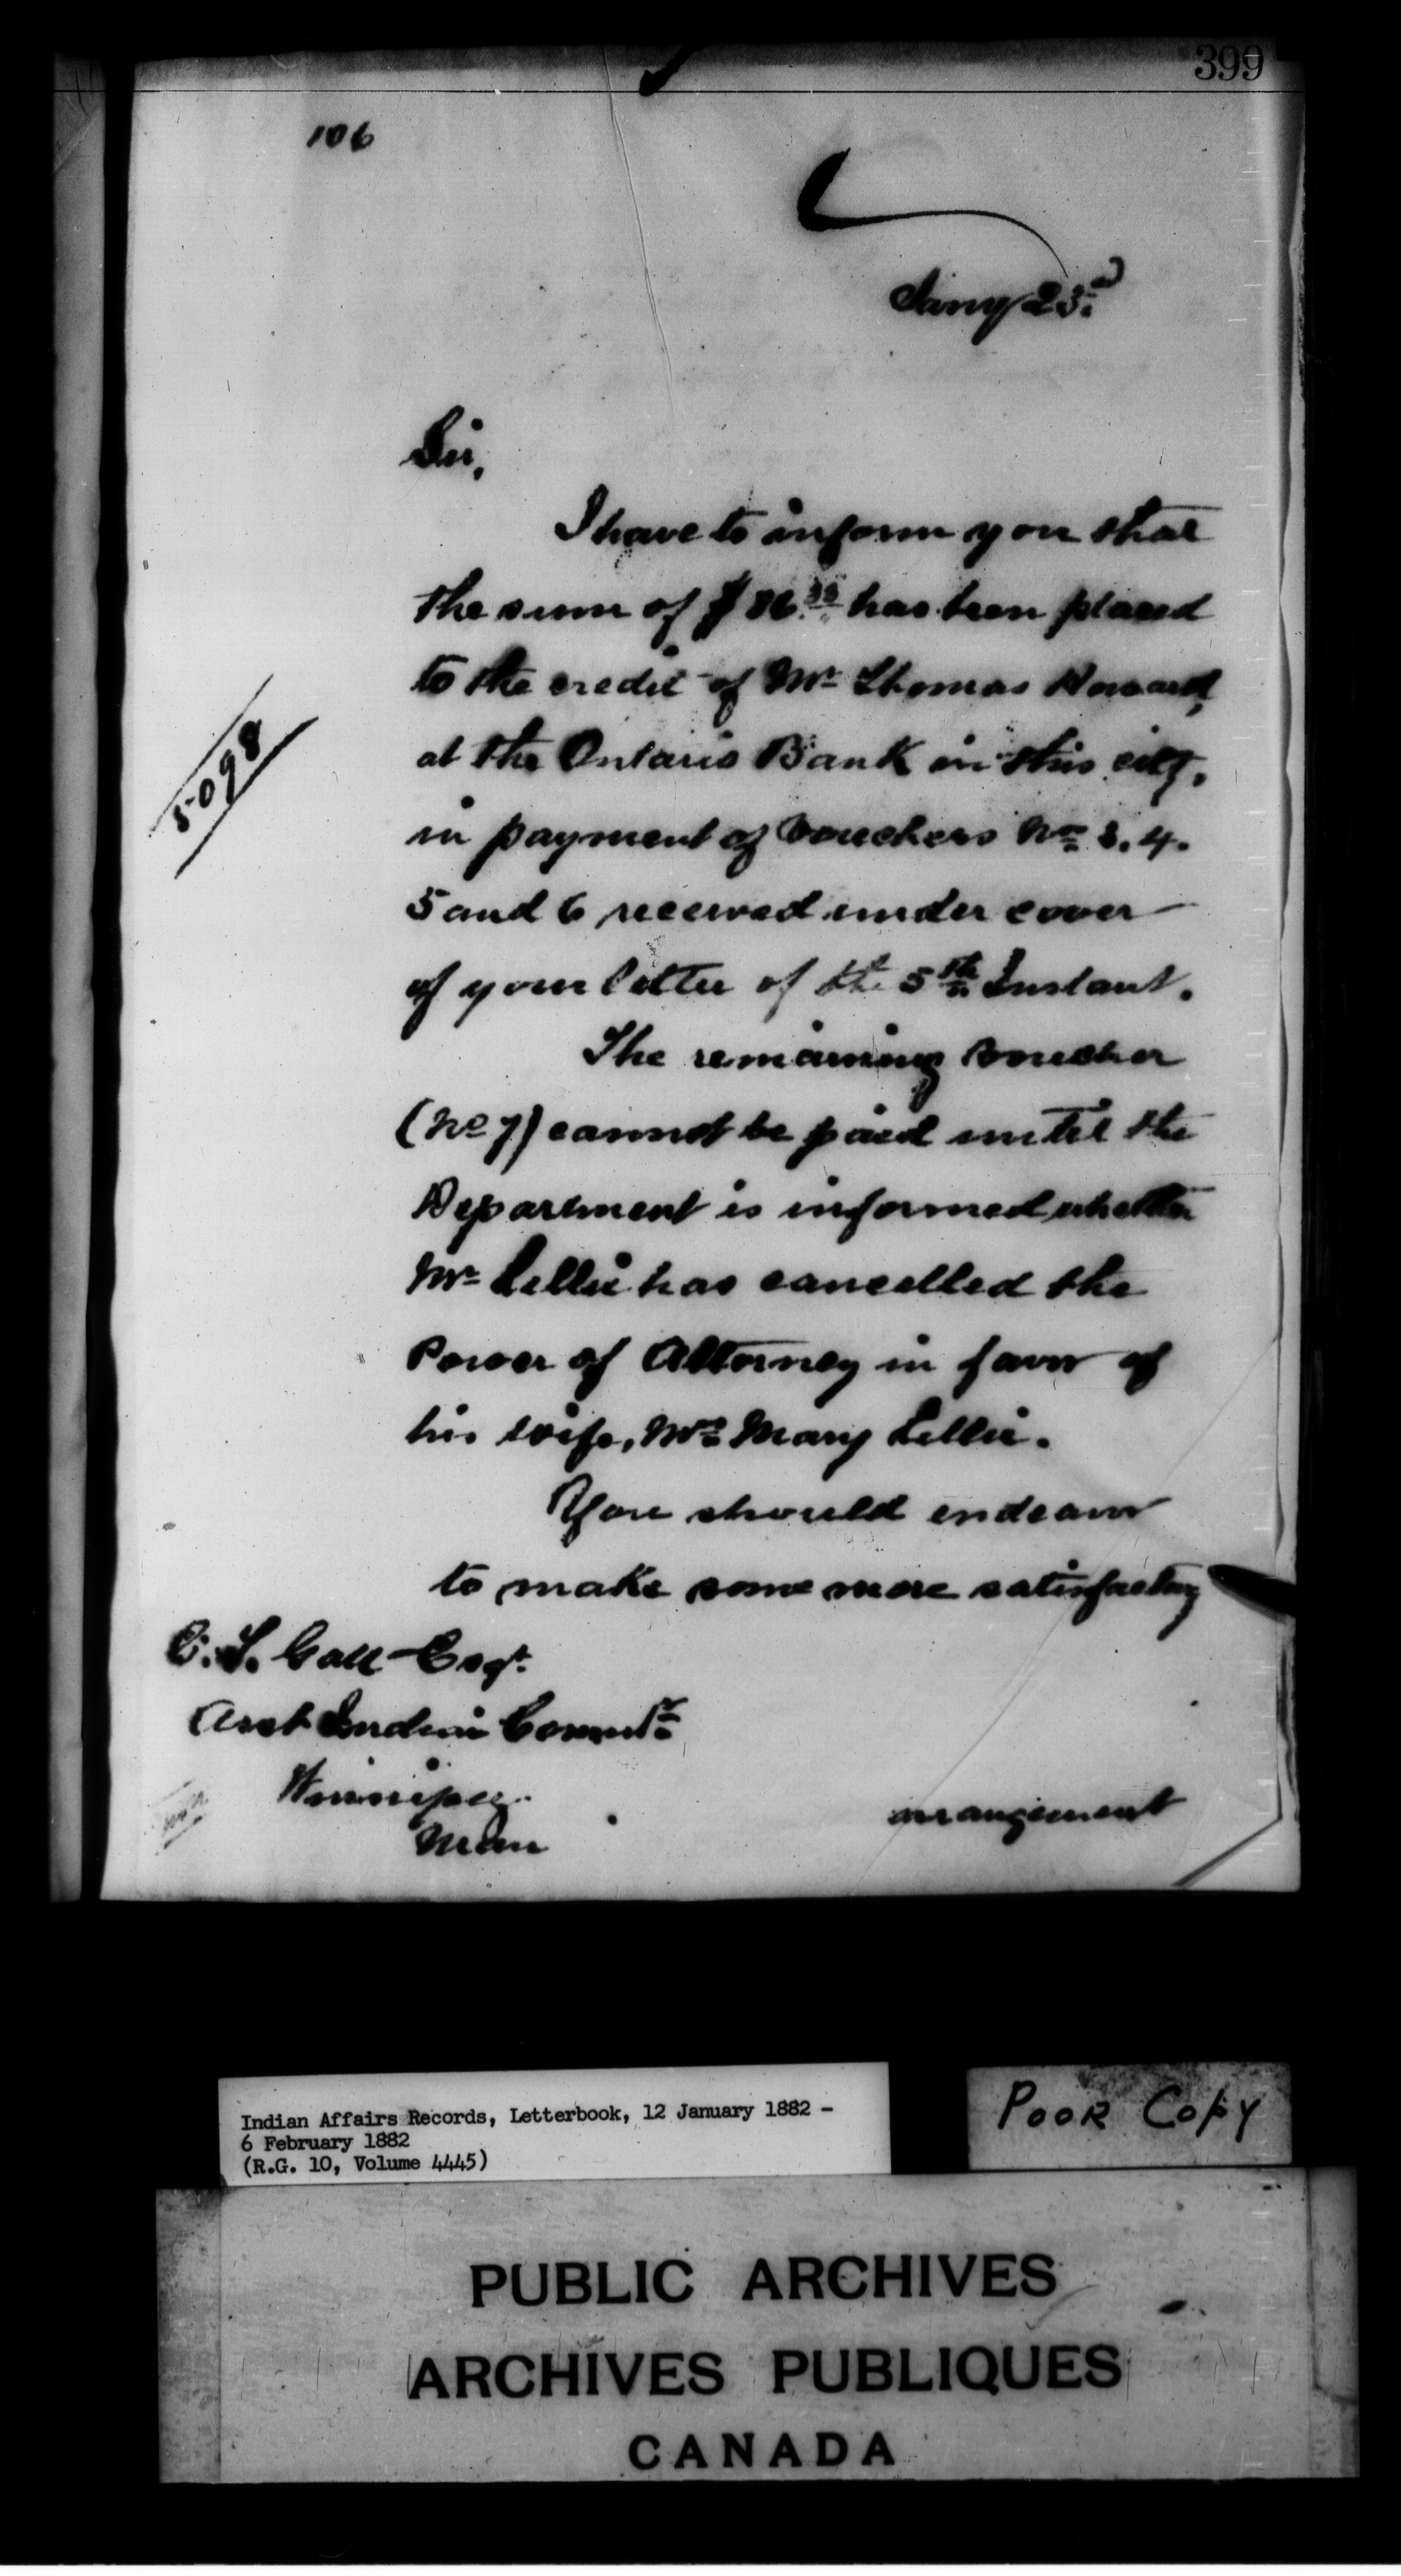 399
106
Jany 23rd
Sir,
I have to inform you that
the sum of $86. has been placed
to the credit of Mr Thomas Howard,
at the Ontario Bank in this city,
in payment of vouchers Nos 3. 4.
5 and 6 received under cover
of your letter of the 5th Instant.
The remaining voucher
(No 7) cannot be paid until the
Department is informed whether
Mr Lellie has cancelled the
Power of Attorney in favor of
his wife, Mrs Mary Lellie.
You should endeavor
to make some more satisfactory
5098
E. Gall Esqr.
Asst Indian Commr
Winnipeg.
Man
arrangement
Indian Affairs Records, Letterbook, 12 January 1882 -
6 February 1882
(R.G. 10, Volume 4445)
POOR COPY
PUBLIC ARCHIVES
ARCHIVES PUBLIQUES
CANADA